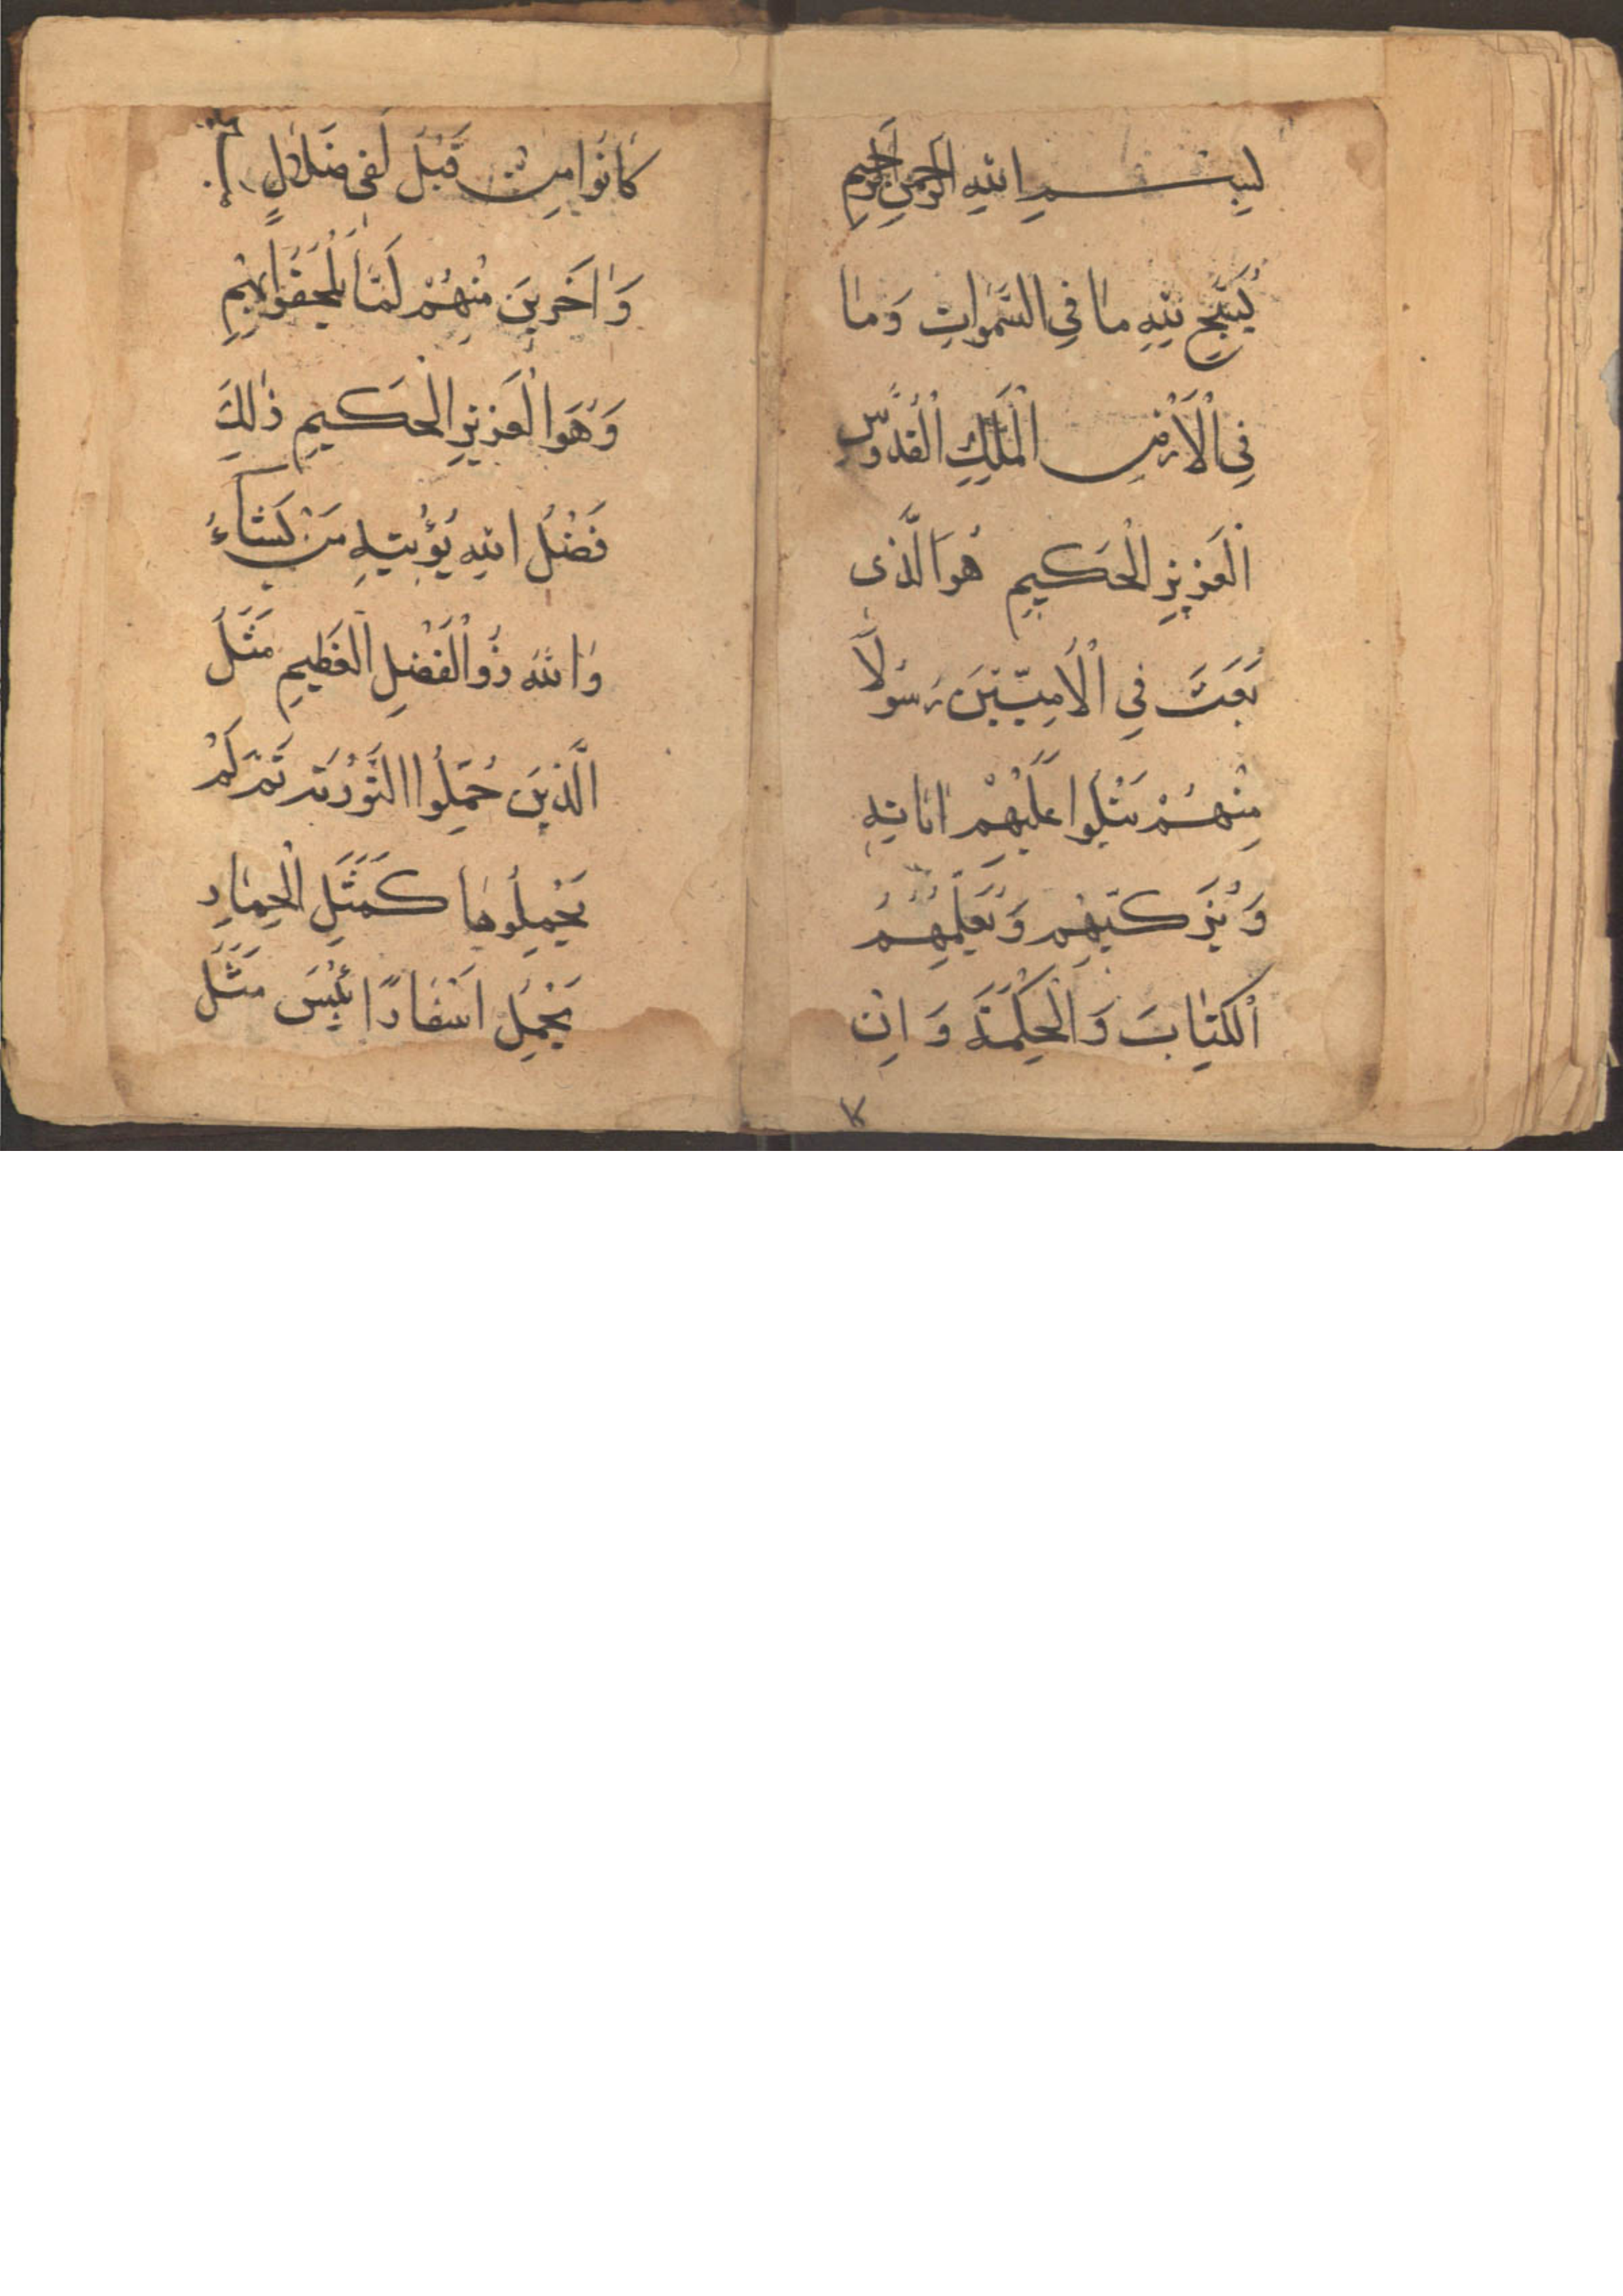 بِسْمِ اللهِ الرَّحْمنِ الرَّحِيمِ
يُسَبِّحُ لِلّهِ مَا فِي السَّمٰوَاتِ وَمَا
فِي الْاَرْضِ الْمَلِكِ الْقُدُّوسِ
الْعَزِيزِ الْحَكِيمِ هُوَ الَّذى
بَعَثَ فِي الْاُمِيّيّنَ رَسُولًا
مِنْهُمْ يَتْلُوا عَلَيْهِمْ اٰيَاتِهِ
وَيُزَكّيهِم وَيُعَلِّمُهُمُ
الْكِتَابَ وَالْحِكْمَةَ وَاِنْ
كَانُوا مِنْ قَبْلُ لَفى ضَلَالٍ
وَاٰخَرينَ مِنْهُمْ لَمَّا يَلْحَقُوا بِهِمْ
وَهُوَ الْعَزيزِ الْحَكيمِ ذٰلِكَ
فَضْلُ اللهِ يُؤْتيهِ مَنْ يَشَاءُ
وَاللهُ ذُو الْفَضْلِ الْعَظيمِ مَثَلُ
الَّذينَ حُمِّلُوا التَّوْرٰيةَ ثُمَّ لَمْ
يَحْمِلُوهَا كَمَثَلِ الْحِمَارِ
يَحْمِلُ اَسْفَارًا بِئْسَ مَثَلُ